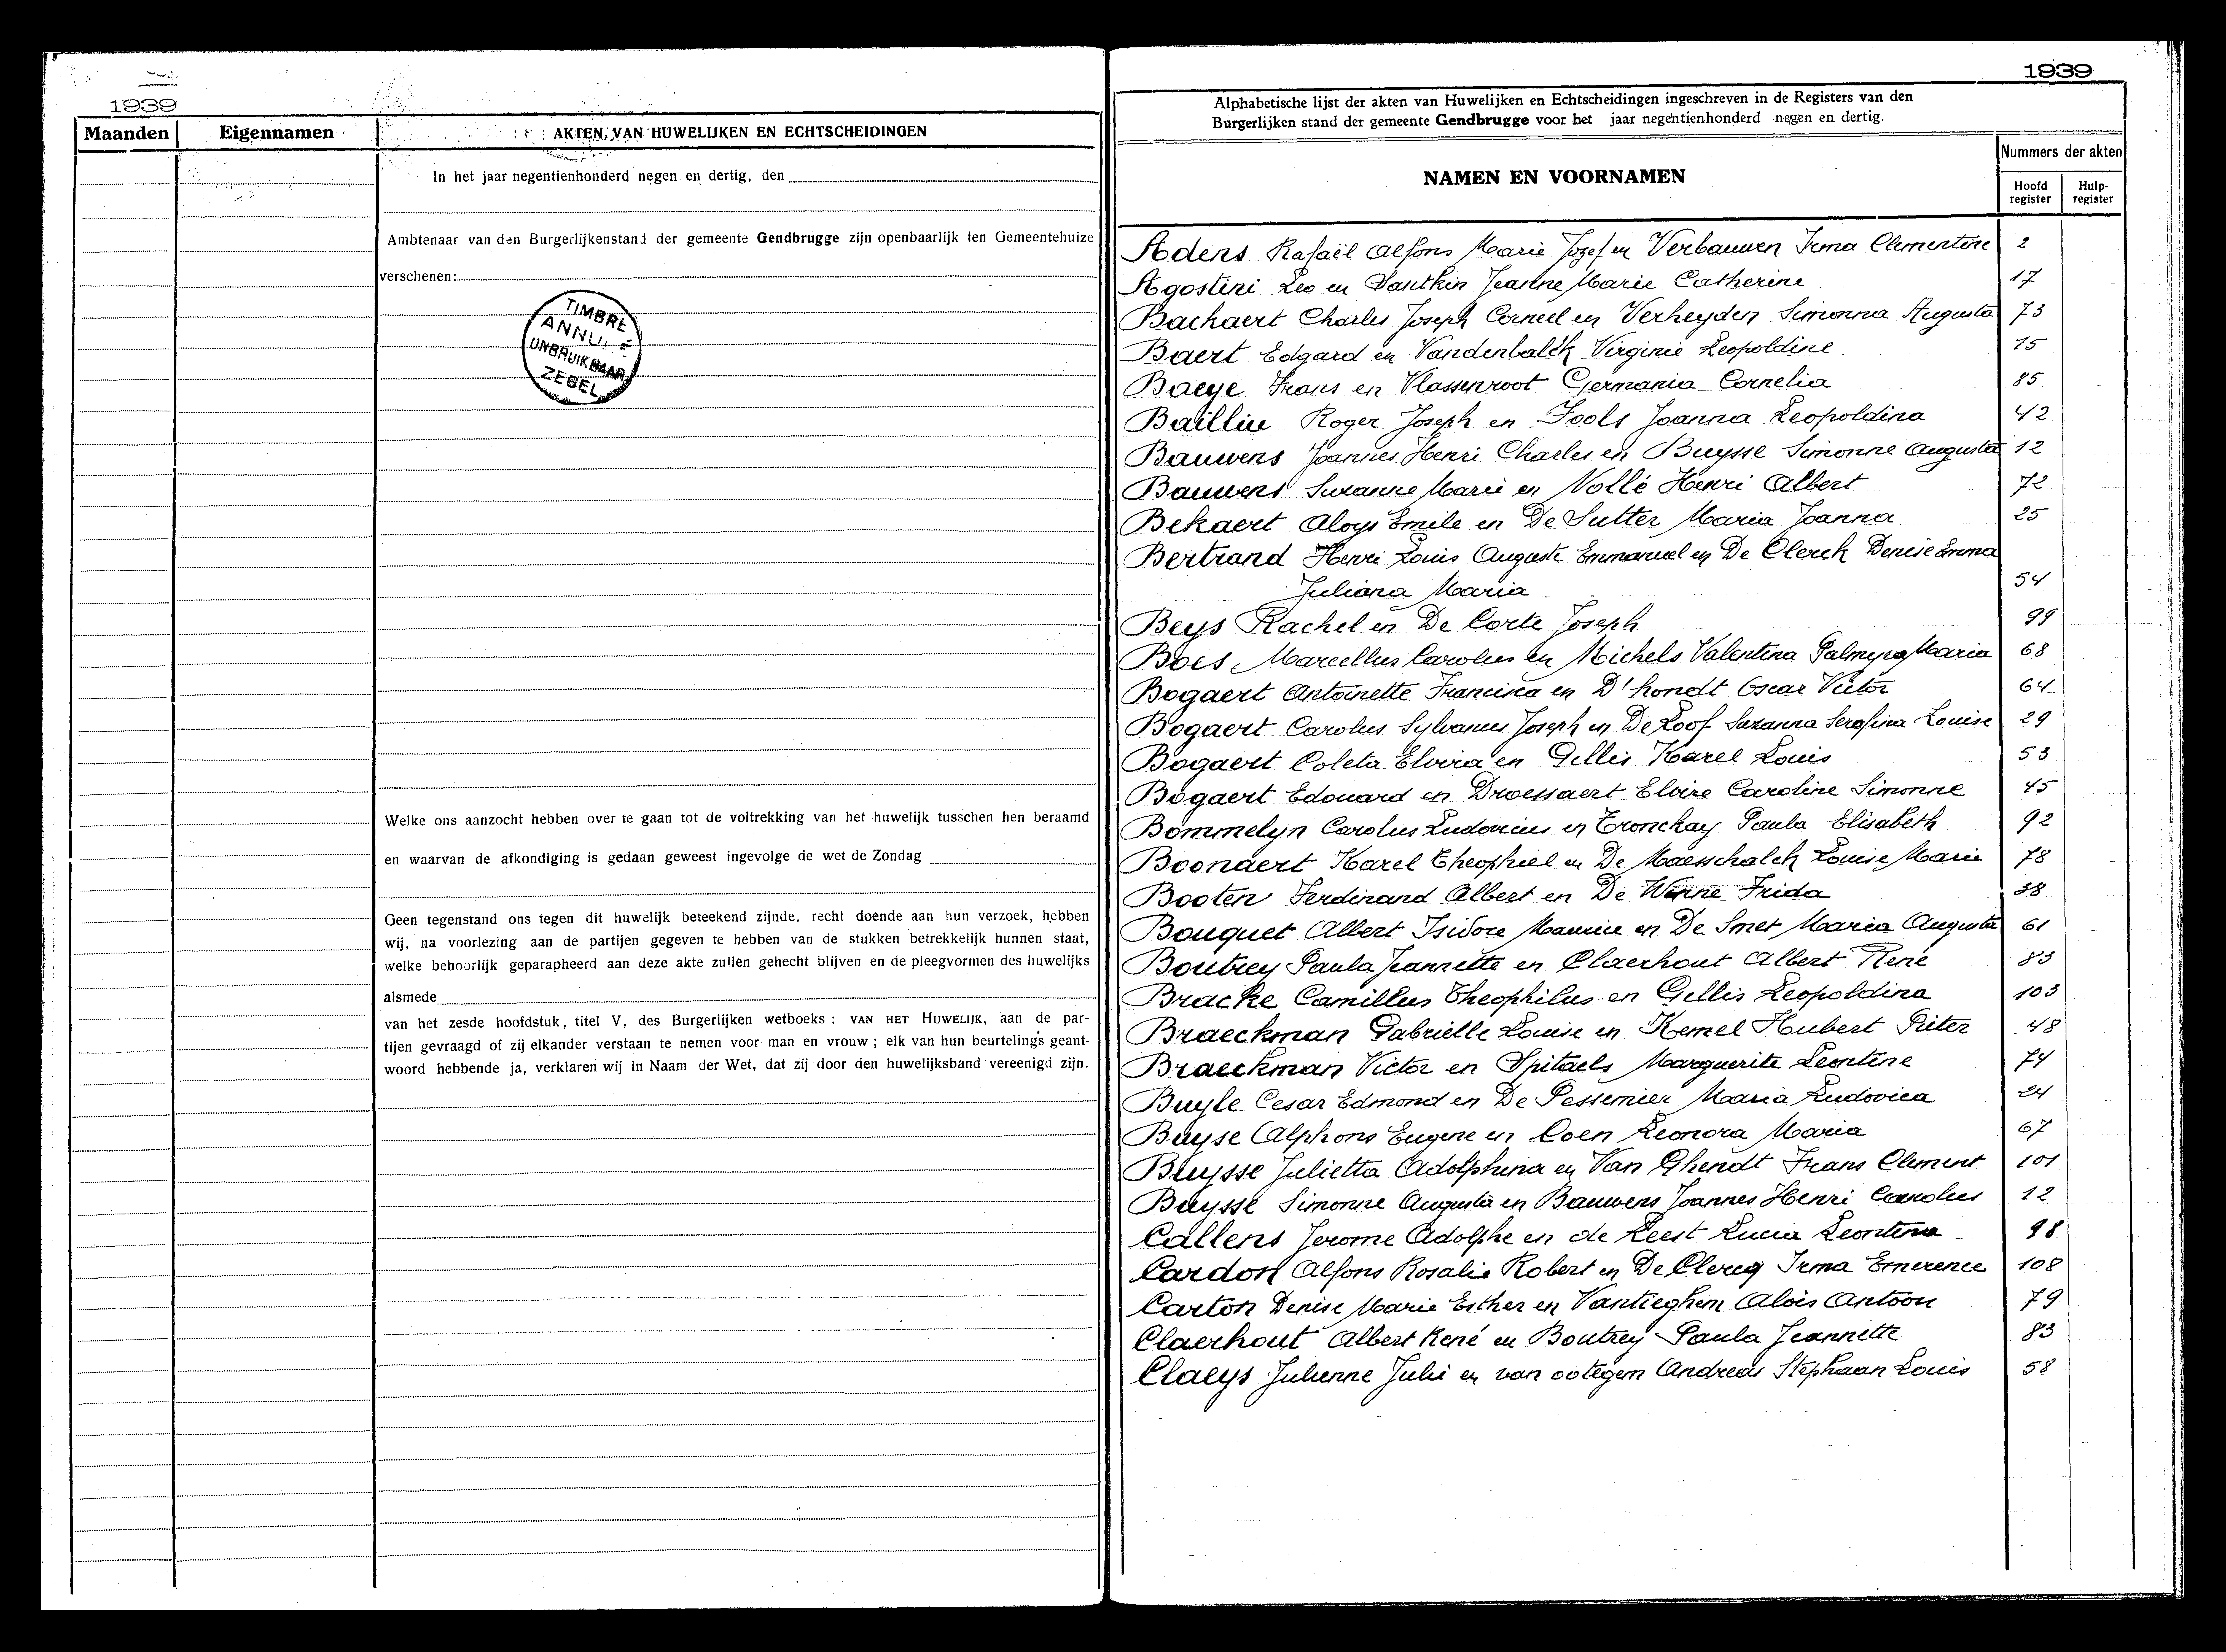 1939
Maanden
Eigennamen
AKTEN VAN HUWELIJKEN EN ECHTSCHEIDINGEN
In het jaar negentienhonderd negen en dertig, den
Ambtenaar van den Burgerlijkenstand der gemeente Gendbrugge zijn openbaarlijk ten Gemeentehuize
verschenen:
TIMBRE
ANNULÉ
ONBRUIKBAAR
ZEGEL
Welke ons aanzocht hebben over te gaan tot de voltrekking van het huwelijk tusschen hen beraamd
en waarvan de afkondiging is gedaan geweest ingevolge de wet de Zondag
Geen tegenstand ons tegen dit huwelijk beteekend zijnde, recht doende aan hun verzoek, hebben
wij, na voorlezing aan de partijen gegeven te hebben van de stukken betrekkelijk hunnen staat,
welke behoorlijk geparapheerd aan deze akte zullen gehecht blijven en de pleegvormen des huwelijks
alsmede
van het zesde hoofdstuk, titel V, des Burgerlijken wetboeks : VAN HET HUWELIJK, aan de par-
tijen gevraagd of zij elkander verstaan te nemen voor man en vrouw ; elk van hun beurtelings geant-
woord hebbende ja, verklaren wij in Naam der Wet, dat zij door den huwelijksband vereenigd zijn.
1939
Alphabetische lijst der akten van Huwelijken en Echtscheidingen ingeschreven in de Registers van den
Burgerlijken stand der gemeente Gendbrugge voor het jaar negentienhonderd negen en dertig.
NAMEN EN VOORNAMEN
Nummers der akten
Hoofd register
Hulp-register
Adens Rafaël Alfons Marie Jozef en Verbauwen Irma Clementine 2
Agostini Leo en Santkin Jeanne Marie Catherine 17
Bachaert Charles Joseph Corneel en Verheyden Simonna Augusta 73
Baert Edgard en Vandenbalck Virginie Leopoldine 15
Baeye Frans en Vlassenroot Germania Cornelia 85
Bailliu Roger Joseph en Fools Joanna Leopoldina 42
Bauwens Joannes Henri Charles en Buysse Simonne Augusta 12
Bauwens Suzanne Marie en Nollé Henri Albert 72
Bekaert Aloys Emile en De Sutter Maria Joanna 25
Bertrand Henri Louis Auguste Emmanuel en De Clerck Denise Emma
Juliana Maria 54
Beys Rachel en De Corte Joseph 99
Boes Marcellus Carolus en Michels Valentina Palmyra Maria 68
Bogaert Antoinette Francisca en D'hondt Oscar Victor 64
Bogaert Carolus Sylvanus Joseph en De Loof Suzanna Serafina Louise 29
Bogaert Coleta Elvira en Gillis Karel Louis 53
Bogaert Edouard en Droessaert Elvire Caroline Simonne 45
Bommelyn Carolus Ludovicus en Tronckay Paula Elisabeth 92
Boonaert Karel Theophiel en De Maesschalck Louise Marie 78
Booten Ferdinand Albert en De Winne Frida 38
Bouquet Albert Isidore Maurice en De Smet Maria Augusta 61
Boutrey Paula Jeannette en Claerhout Albert René 83
Bracke Camillus Theophilus en Gillis Leopoldina 103
Braeckman Gabrielle Louise en Kemel Hubert Pieter 48
Braeckman Victor en Spitaels Marguerite Leontine 74
Buyle Cesar Edmond en De Pessemier Maria Ludovica 24
Buyse Alphons Eugene en Coen Leonora Maria 67
Buysse Julietta Adolphina en Van Ghendt Frans Clement 101
Buysse Simonne Augusta en Bauwens Joannes Henri Carolus 12
Callens Jerome Adolphe en de Leest Lucia Leontina 98
Cardon Alfons Rosalie Robert en De Clercq Irma Emerence 108
Carton Denise Marie Esther en Vantieghem Alois Antoon 79
Claerhout Albert René en Boutrey Paula Jeannette 83
Claeys Julienne Julie en van ootegem Andreas Stephaan Louis 58